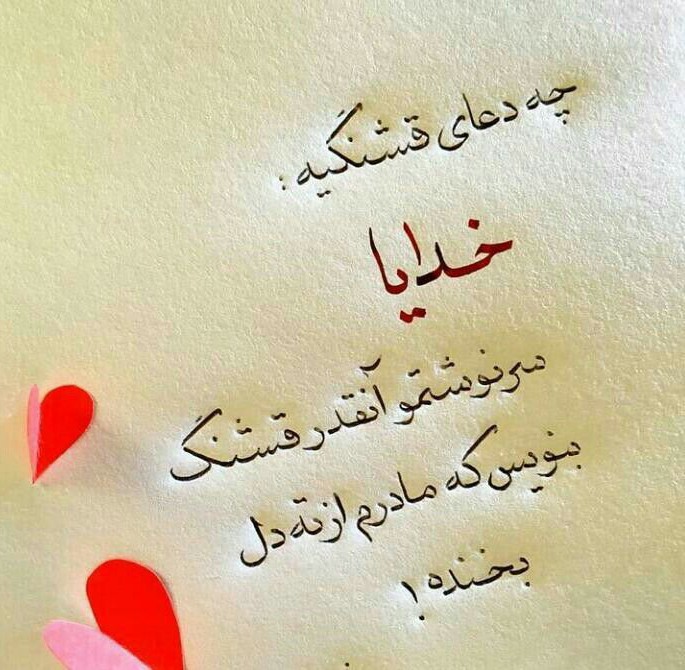 چه دعای قشنگیه:
خدایا
سرنوشتمو آنقدر قشنگ
بنویس که مادرم از ته دل
بخنده!